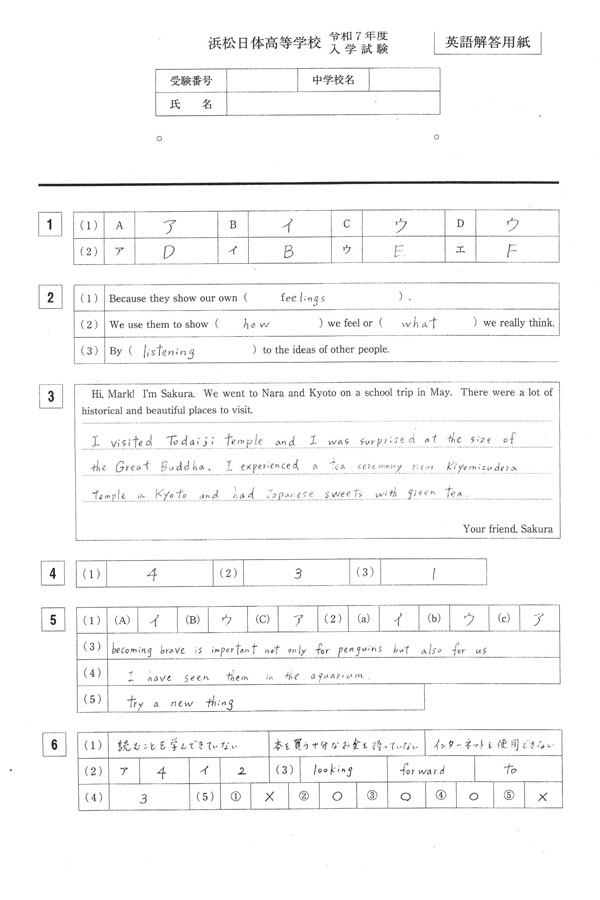 浜松日体高等学校 令和7年度 入学試験 英語解答用紙
受験番号 中学校名
氏 名
1 (1) A ア B イ C ウ D ウ
(2) ア D イ B ウ E エ F
2 (1) Because they show our own ( feelings ) .
(2) We use them to show ( how ) we feel or ( what ) we really think.
(3) By ( listening ) to the ideas of other people.
3 Hi, Mark! I'm Sakura. We went to Nara and Kyoto on a school trip in May. There were a lot of
historical and beautiful places to visit.
I visited Todaiji temple and I was surprised at the size of
the Great Buddha. I experienced a tea ceremony near Kiyomizudera
temple in Kyoto and had Japanese sweets with green tea.
Your friend, Sakura
4 (1) 4 (2) 3 (3) 1
5 (1) (A) イ (B) ウ (C) ア (2) (a) イ (b) ウ (c) ア
(3) becoming brave is important not only for penguins but also for us
(4) I have seen them in the aquarium.
(5) try a new thing
6 (1) 読むことを学んできていない 本を買う十分なお金を持っていない インターネットを使用できない
(2) ア 4 イ 2 (3) looking forward to
(4) 3 (5) ① × ② ○ ③ ○ ④ ○ ⑤ ×